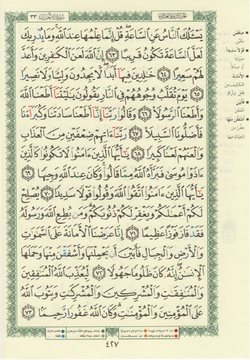 يَسْـَٔلُكَ ٱلنَّاسُ عَنِ ٱلسَّاعَةِ قُلْ إِنَّمَا عِلْمُهَا عِندَ ٱللَّهِ وَمَا يُدْرِيكَ
لَعَلَّ ٱلسَّاعَةَ تَكُونُ قَرِيبًا ٦٣ إِنَّ ٱللَّهَ لَعَنَ ٱلْكَٰفِرِينَ وَأَعَدَّ
لَهُمْ سَعِيرًا ٦٤ خَٰلِدِينَ فِيهَآ أَبَدًا لَّا يَجِدُونَ وَلِيًّا وَلَا نَصِيرًا
٦٥ يَوْمَ تُقَلَّبُ وُجُوهُهُمْ فِي ٱلنَّارِ يَقُولُونَ يَٰلَيْتَنَآ أَطَعْنَا ٱللَّهَ
وَأَطَعْنَا ٱلرَّسُولَا۠ ٦٦ وَقَالُوا۟ رَبَّنَآ إِنَّآ أَطَعْنَا سَادَتَنَا وَكُبَرَآءَنَا
فَأَضَلُّونَا ٱلسَّبِيلَا۠ ٦٧ رَبَّنَآ ءَاتِهِمْ ضِعْفَيْنِ مِنَ ٱلْعَذَابِ
وَٱلْعَنْهُمْ لَعْنًا كَبِيرًا ٦٨ يَٰٓأَيُّهَا ٱلَّذِينَ ءَامَنُوا۟ لَا تَكُونُوا۟ كَٱلَّذِينَ
ءَاذَوْا۟ مُوسَىٰ فَبَرَّأَهُ ٱللَّهُ مِمَّا قَالُوا۟ وَكَانَ عِندَ ٱللَّهِ وَجِيهًا
٦٩ يَٰٓأَيُّهَا ٱلَّذِينَ ءَامَنُوا۟ ٱتَّقُوا۟ ٱللَّهَ وَقُولُوا۟ قَوْلًا سَدِيدًا ٧٠ يُصْلِحْ
لَكُمْ أَعْمَٰلَكُمْ وَيَغْفِرْ لَكُمْ ذُنُوبَكُمْ وَمَن يُطِعِ ٱللَّهَ وَرَسُولَهُۥ
فَقَدْ فَازَ فَوْزًا عَظِيمًا ٧١ إِنَّا عَرَضْنَا ٱلْأَمَانَةَ عَلَى ٱلسَّمَٰوَٰتِ
وَٱلْأَرْضِ وَٱلْجِبَالِ فَأَبَيْنَ أَن يَحْمِلْنَهَا وَأَشْفَقْنَ مِنْهَا وَحَمَلَهَا
ٱلْإِنسَٰنُ إِنَّهُۥ كَانَ ظَلُومًا جَهُولًا ٧٢ لِّيُعَذِّبَ ٱللَّهُ ٱلْمُنَٰفِقِينَ
وَٱلْمُنَٰفِقَٰتِ وَٱلْمُشْرِكِينَ وَٱلْمُشْرِكَٰتِ وَيَتُوبَ ٱللَّهُ
عَلَى ٱلْمُؤْمِنِينَ وَٱلْمُؤْمِنَٰتِ وَكَانَ ٱللَّهُ غَفُورًا رَّحِيمًا ٧٣
٤٢٧